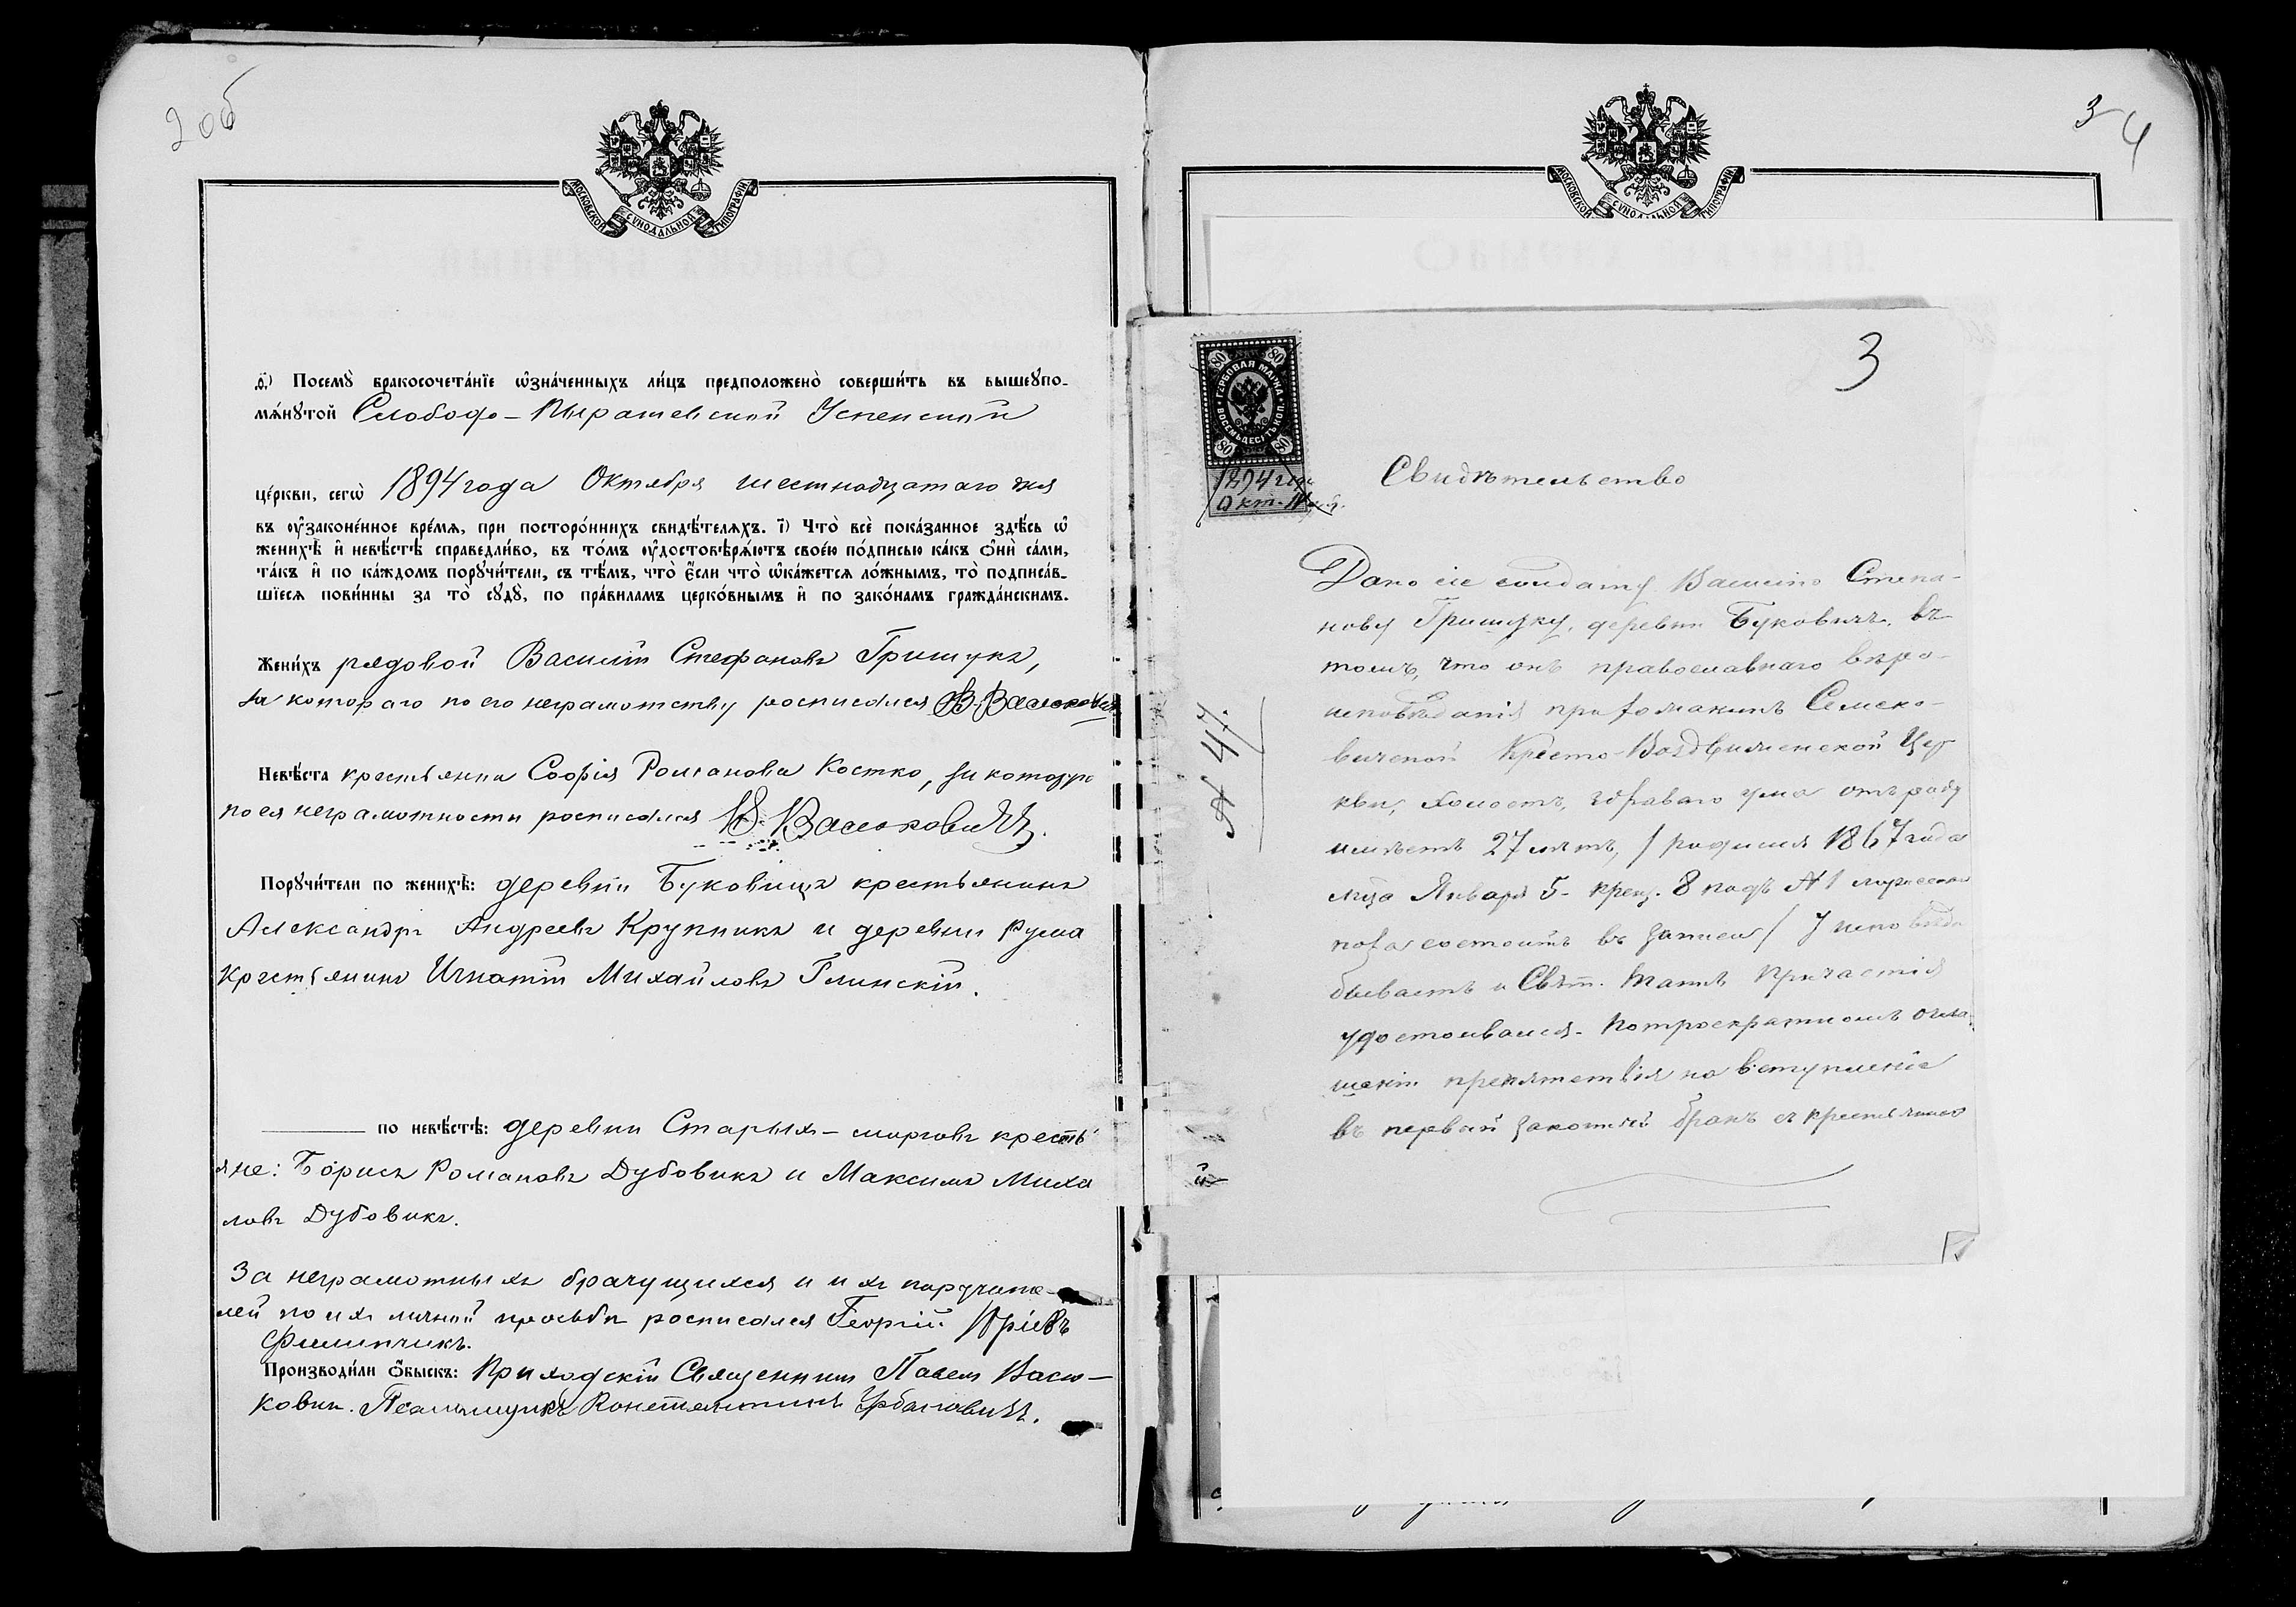 2 об
МОСКОВСКОЙ СѴНОДАЛЬНОЙ ТИПОГРАФІИ
ѳ҃) Посемꙋ̀ бракосочета́нїе ѡ҆зна́ченныхъ ли́цъ предположено̀ соверши́ть въ вышеꙋпо-
мѧ́нꙋтой Слободо-Пырашевской Успенской
це́ркви, сегѡ̀ 1894 года Октября шестнадцатаго дня
въ ᲂу҆законе́нное вре́мѧ, при посторо́ннихъ свидѣ́телѧхъ. і҃) Что̀ всѐ пока́занное здѣ́сь ѡ҆
женихѣ̀ и҆ невѣ́стѣ справедли́во, въ то́мъ ᲂу҆достовѣрѧ́ютъ свое́ю по́дписью ка́къ ѻ҆нѝ са́ми,
та́къ и҆ по ка́ждомъ порꙋчи́тели, съ тѣ́мъ, что̀ є҆́сли что̀ ѡ҆ка́жетсѧ ло́жнымъ, то̀ подписа́в-
шїесѧ пови́нны за то̀ сꙋдꙋ̀, по пра́виламъ церко́внымъ и҆ по зако́намъ гражда́нскимъ.
Жени́хъ рядовой Василій Стефановъ Гришукъ,
за котораго по его неграмотству росписался В. Васюковичъ
Невѣ́ста крестьянка Софія Романова Костко, за которую
по ея неграмотности росписался В. Васюковичъ.
Порꙋчи́тели по женихѣ̀: деревни Буковищъ крестьянинъ
Александръ Андреевъ Крупникъ и деревни Рума
крестьянинъ Игнатій Михайловъ Глинскій.
по невѣ́стѣ: деревни Старыхъ-морговъ кресть
яне: Борисъ Романовъ Дубовикъ и Максимъ Миха
ловъ Дубовикъ.
За неграмотныхъ брачущихся и ихъ поручите-
лей по ихъ личной просьбѣ росписался Георгій Юріевъ
Филипчикъ.
Производи́ли ѻ҆́быскъ: Приходскій Священникъ Павелъ Васю-
ковичъ. Псаломщикъ Константинъ Урбановичъ.
3 4
МОСКОВСКОЙ СѴНОДАЛЬНОЙ ТИПОГРАФІИ
3
80 80
ГЕРБОВАЯ МАРКА
ВОСЕМЬДЕСЯТЪ КОП.
80 80
1894 года
Окт.
№ 47.
Свидѣтельство
Дано сіе солдату Василію Степа-
нову Гришуку, деревни Буковичъ, въ
томъ, что онъ православнаго вѣро-
исповѣданія прихожанинъ Семеко-
вичской Кресто-Воздвиженской Цер
кви, холостъ, здраваго ума отъ роду
имѣетъ 27 лѣтъ, / родился 1867 года
м-ца Января 5 - крещ. 8 подъ № 1 мужескаго
пола состоитъ въ записи / У исповѣди
бываетъ и Свят. Таинъ Причастія
удостоивался. По троекратномъ огла-
шеніи препятствія на вступленіе
въ первый законный бракъ съ крестьянкою